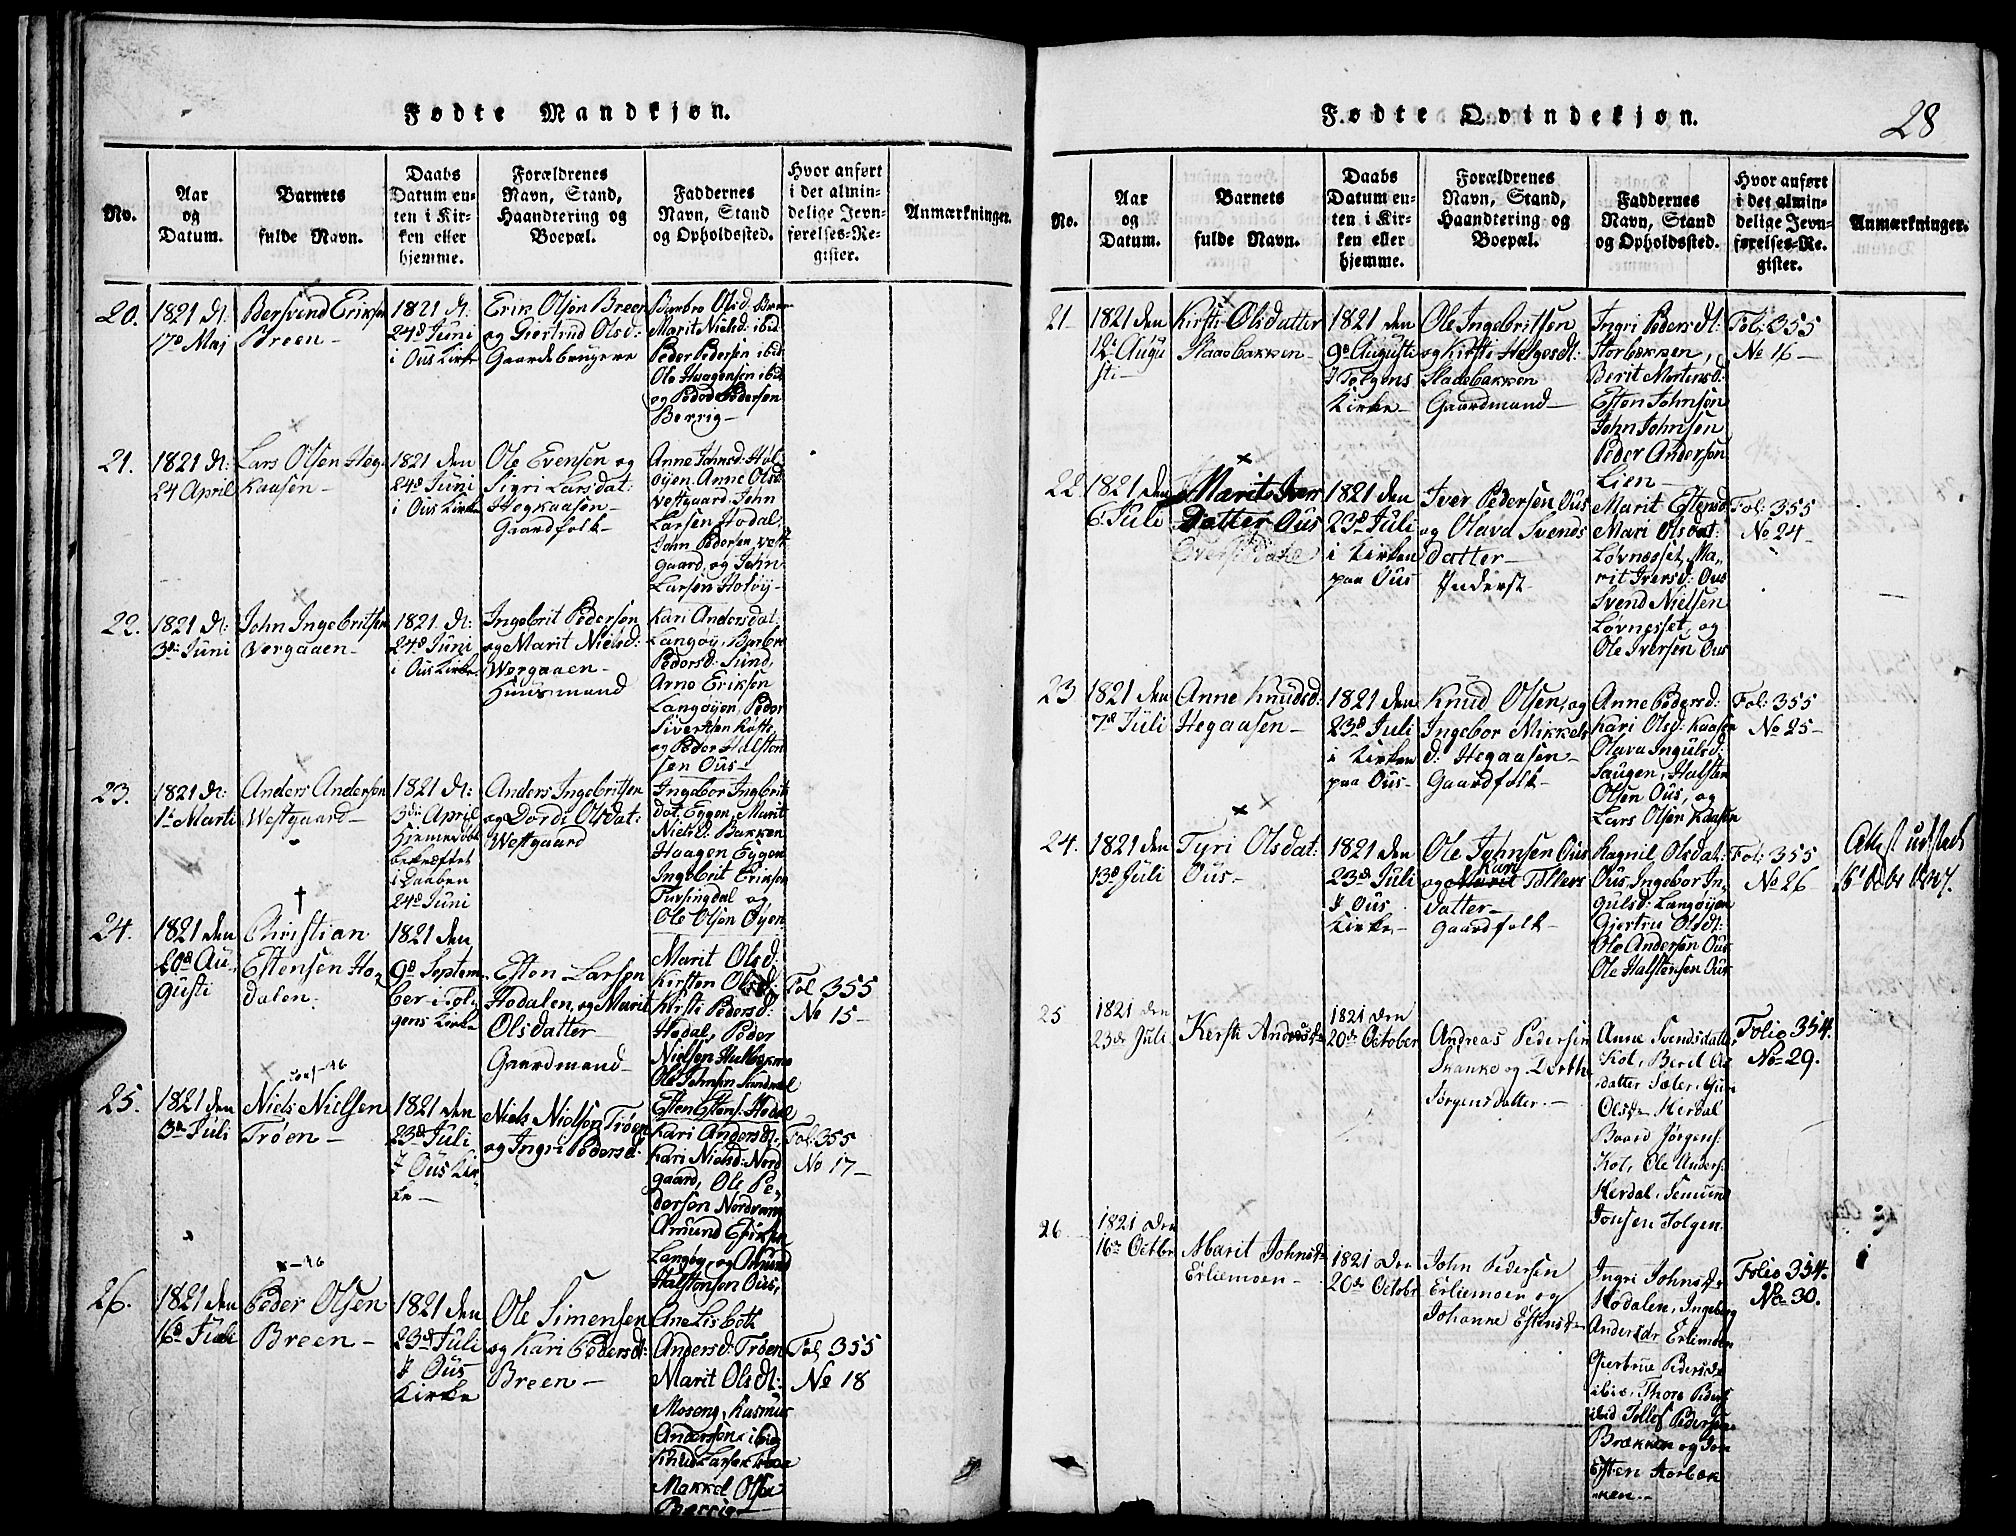 Fødte Mandkjøn.
No.
Aar
og
Datum.
Barnets
fulde Navn.
Daabs
Datum en-
ten i Kir-
ken eller
hjemme.
Forældrenes
Navn, Stand,
Haandtering og
Boepæl.
Faddernes
Navn, Stand
og Opholdssted.
Hvor anført
i det almin-
delige Jevn-
førelses-Re-
gister.
Anmærkninger.
20.
1821 d:
17d Maj
Bersvend Eriksen
Breen
1821 d:
24d Juni
i Ous Kirke
Erik Olsen Breen
og Giertrud Olsd:
Gaardebrugere
Barbro Olsd. Breen
Marit Nielsd: ibid
Peder Pedersen ibid
Ole Haagensen ibid
og Peder Pedersen
Berrig
21.
1821 d:
24 April
Lars Olsen Heg-
kaasen
1821 den
24d Juni
i Ous Kirke
Ole Evensen og
Sigri Larsdat:
Hegkaasen
Gaardfolk
Anne Johnsd: Hol-
øyen, Anne Olsd
Vestgaard, John
Larsen Hodal,
John Pedersen Vest
gaard, og John
Larsen Holøy
22.
1821 d:
3d Juni
John Ingebritsen
Vergaaen
1821 d:
24d Juni
i Ous Kirke
Ingebrit Pedersen
og Marit Nielsd:
Wergaaen
Huusmand
Kari Andersdat.
Langøy, Barbro
Pedersd: Sund,
Arne Eriksen
Langøyen, Peder
Sivertsen
og Peder Halsten
sen Ous
23.
1821 d:
1d Marti
Anders Andersen
Westgaard
1821 d:
3d April
Hjemmedøbt
bekræftet
i Daaben
24d Juni
Anders Ingebritsen
og Dordi Olsdat:
Westgaard
Ingebor Ingebrits
dat. Eggen, Marit
Nielsd: Bakken
Haagen Eggen
Ingebrit Eriksen
og
Ole Olsen Øyen
24.
1821 den
20d Au-
gusti
Christian
Estensen Ho-
dalen
1821 den
9d Septem
ber i Tol-
gens Kirke
Esten Larsen
Hodalen, og Marit
Olsdatter
Gaardmand
Marit Olsd:
Kirsten Olsd:
Kirsti Pedersd:
Hodal, Peder
Nielsen
Ole Johnsen
Esten Estens: Hodal
Fol 355
No 15
25.
1821 den
3d Juli
Niels Nielsen
Trøen
1821 den
23d Juli
I Ous Kir-
ke
Niels Nielsen Trøen
og Ingri Pedersd:
Kari Andersdt:
Kari Nielsd: Nord
gaard, Ole Pe-
dersen Nordvang
Amund Eriksen
Langøy, og Amund
Halstensen Ous,
Fol: 355
No 17
26.
1821 den
16d Juli
Peder Olsen
Breen
1821 den
23d Juli
I Ous
Kirke
Ole Simensen
og Kari Pedersdt:
Breen
Ane Lisbeth
Andersd: Trøen
Marit Olsdt:
Moseng, Rasmus
Andersen ibid
Knud Larsen
Mikkel Olsen
Berrig
Fol 355
No 18
Fødte Qvindekjøn.
28
No.
Aar
og
Datum.
Barnets
fulde Navn.
Daabs
Datum en-
ten i Kir-
ken eller
hjemme.
Forældrenes
Navn, Stand,
Haandtering og
Boepæl.
Faddernes
Navn, Stand
og Opholdssted.
Hvor anført
i det almin-
delige Jevn-
førelses-Re-
gister.
Anmærkninger.
21
1821 den
12d Augu
sti
Kirsti Olsdatter
Stadsbakken
1821 den
9d Augusti
I Tolgens
Kirke
Ole Ingebritsen
og Kirsti Helgesdt:
Stadsbakken
Gaardmand
Ingri Pedersdt:
Storbekken,
Berit Mortensd:
Esten Johnsen
John Johnsen
Peder Andersen
Lien
Fol: 355
No 16
22
1821 den
6. Juli
Marit Ivers
Datter Ous
1821 den
23d Juli
i Kirken
paa Ous
Iver Pedersen Ous
og Olava Svends
datter
Inderst
Marit Estensd
Mari Olsdat:
Løvnesset, Ma-
rit Iversd: Ous
Svend Nielsen
Løvnesset, og
Ole Iversen Ous
Fol: 355
No 24
23
1821 den
7d Juli
Anne Knudsd:
Hegaasen
1821 den
23d Juli
i Kirken
paa Ous
Knud Olsen, og
Ingebor Mikkels
d: Hegaasen
Gaardfolk
Anne Pedersd:
Kari Olsd: Kaasen
Olava Ingulsd:
Saugen, Halsten
Olsen Ous, og
Lars Olsen Kaasen
Fol: 355
No 25
24.
1821 den
13d Juli
Tyri Olsdat:
Ous
1821 den
23d Juli
I Ous
Kirke
Ole Johnsen Ous
Kari
og Marit Tollefs
datter
Gaardfolk
Ragnil, Olsdat:
Ous, Ingebor In-
gulsd: Langøyen
Gjertru Olsdt:
Ole Andersen Ous
Ole Halstensen Ous
Fol: 355
No 26
Attest udstedt
25
1821 den
23de Juli
Kersti
1821 den
20de October
Andreas Pedersen
Skanke og Dorthe
Jørgensdatter.
Anne Svendsdatter
Kot, Berit
datter Sæter,
Olsdr Herdal
Baard Jørgens:
Kot, Ole Anders:
Herdal, Semund
Jonsen Tolgen
Folio 354.
No 29.
26
1821 den
16de Octbr
Marit Johnsdr
Erliemoen
1821 den
20de Octobr
John Pedersen
Erliemoen og
Johanne Estensdr
Ingri Johnsdr
Hodalen, Ingeborg
Andersdr Erliemoen
Giertrue Pedersdr
ibid, Thore Peders
ibid Tollef Pedersen
Brækken og Jon
Esten Storbæk
ken.
Folio 354.
No 30.